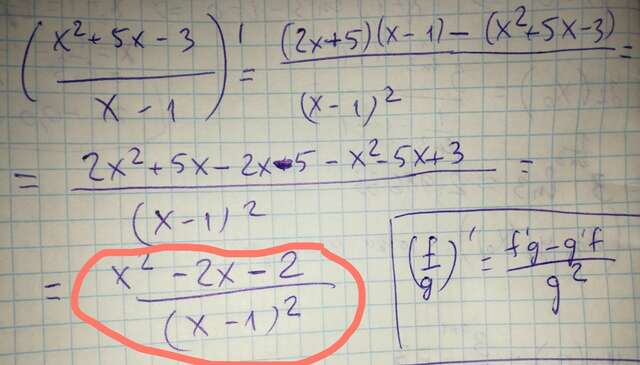 ((x²+5x-3)/(x-1))' = ((2x+5)(x-1)-(x²+5x-3))/(x-1)² =
= (2x²+5x-2x-5-x²-5x+3)/(x-1)² =
= (x²-2x-2)/(x-1)²
(f/g)' = (f'g-g'f)/g²